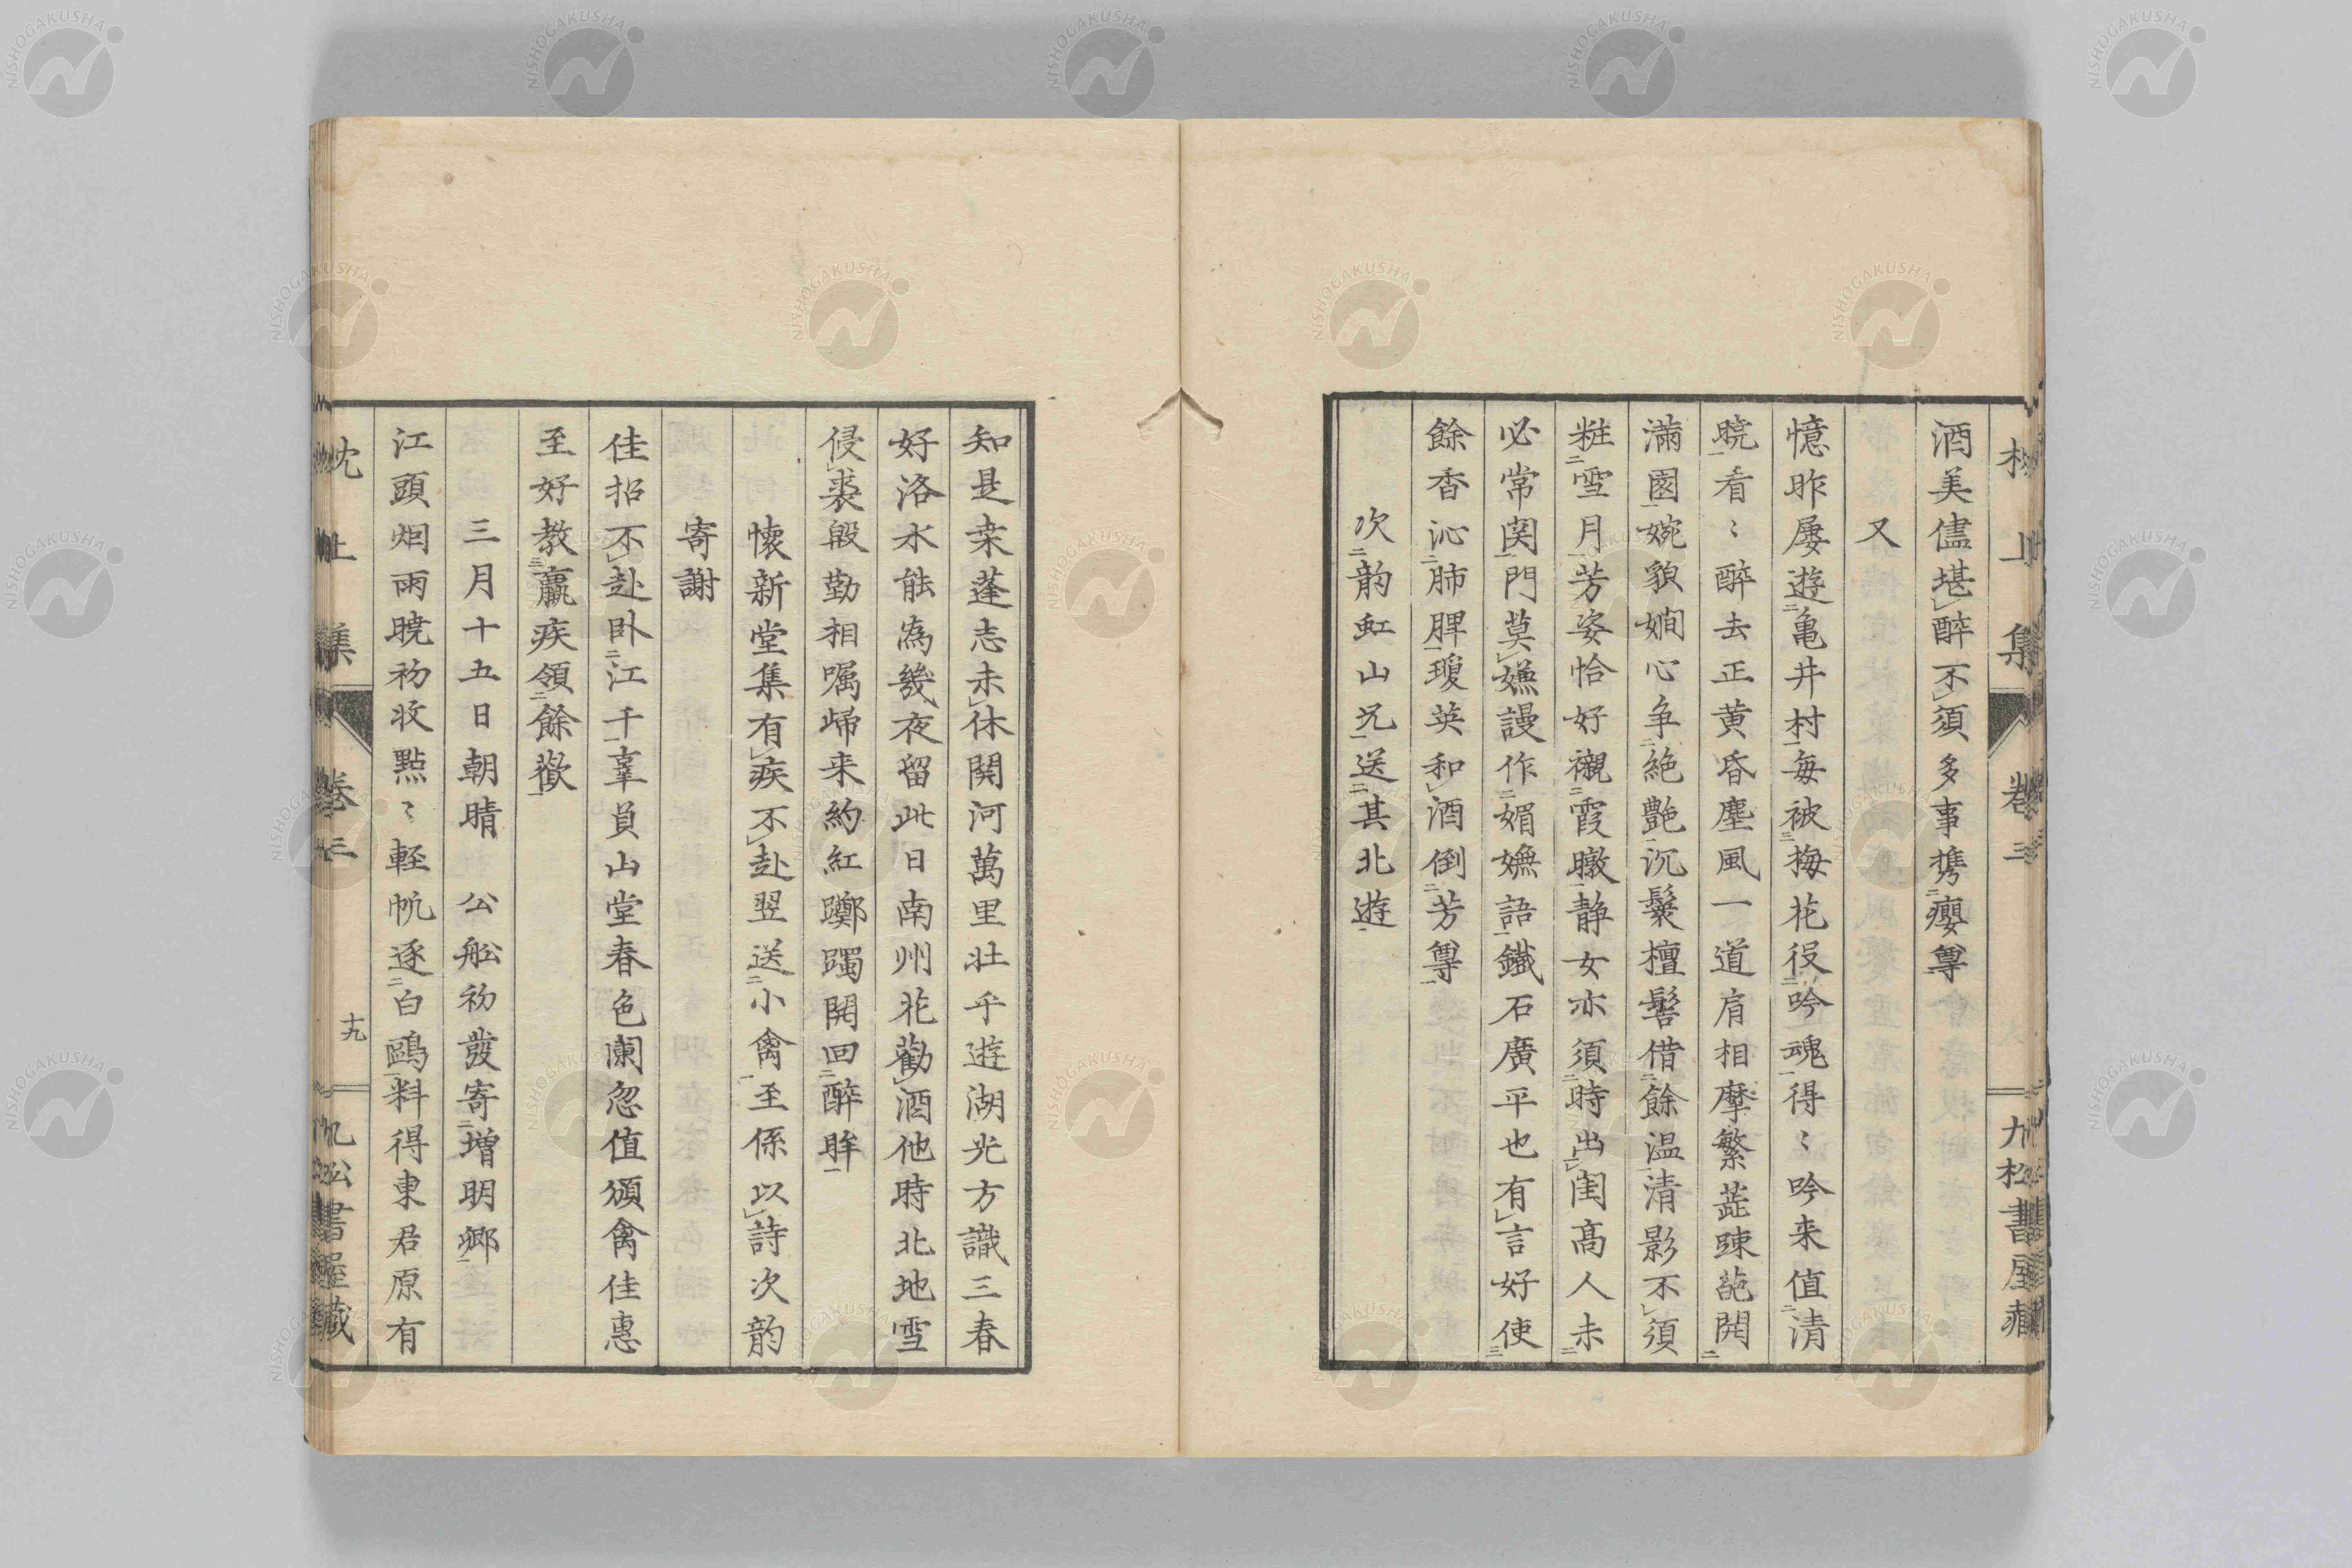 酒美儘堪醉不須多事携癭尊
又
憶昨屢遊亀井村毎被梅花役吟魂得〻吟来値清
暁看〻醉去正黄昏塵風一道肩相摩繁蕋踈葩開
滿園婉貌嫺心争絶艶沉鬟檀髻借餘温清影不須
粧雪月芳姿恰好襯霞暾静女亦須時出閨高人未
必常関門莫嫌謾作媚嫵語鐵石廣平也有言好使
餘香沁肺脾瓊英和酒倒芳尊
次韵虹山兄送其北遊
知是桒蓬志未休関河萬里壮乎遊湖光方識三春
好洛水能為幾夜留此日南州花勸酒他時北地雪
侵裘慇勤相嘱歸来約紅躑躅開回醉眸
懐新堂集有疾不赴翌送小禽至係以詩次韵
寄謝
佳招不赴卧江干辜負山堂春色闌忽値頒禽佳惠
至好教羸疾領餘歡
三月十五日朝晴 公舩初發寄増明郷
江頭烟雨曉初收㸃〻軽帆逐白鷗料得東君原有
枕上集 卷三 十九 九松書屋藏